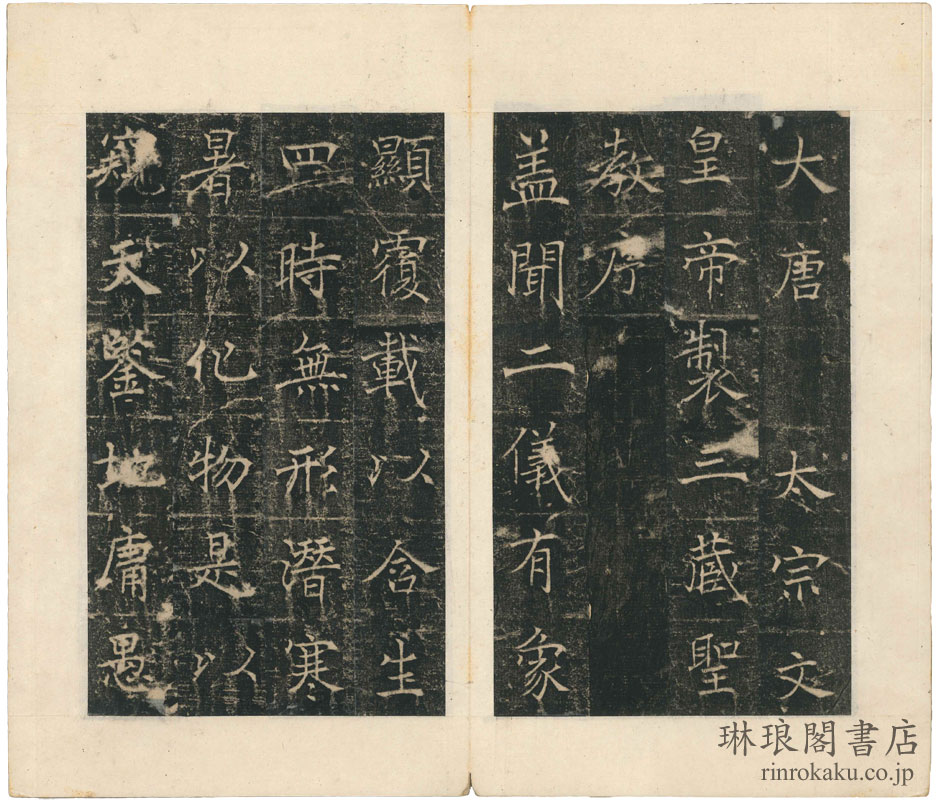 大唐太宗文
皇帝製三藏聖
教序
盖聞二儀有象
顯覆載以含生
四時無形潛寒
暑以化物是以
窺天鑒地庸愚
琳琅閣書店
rinrokaku.co.jp